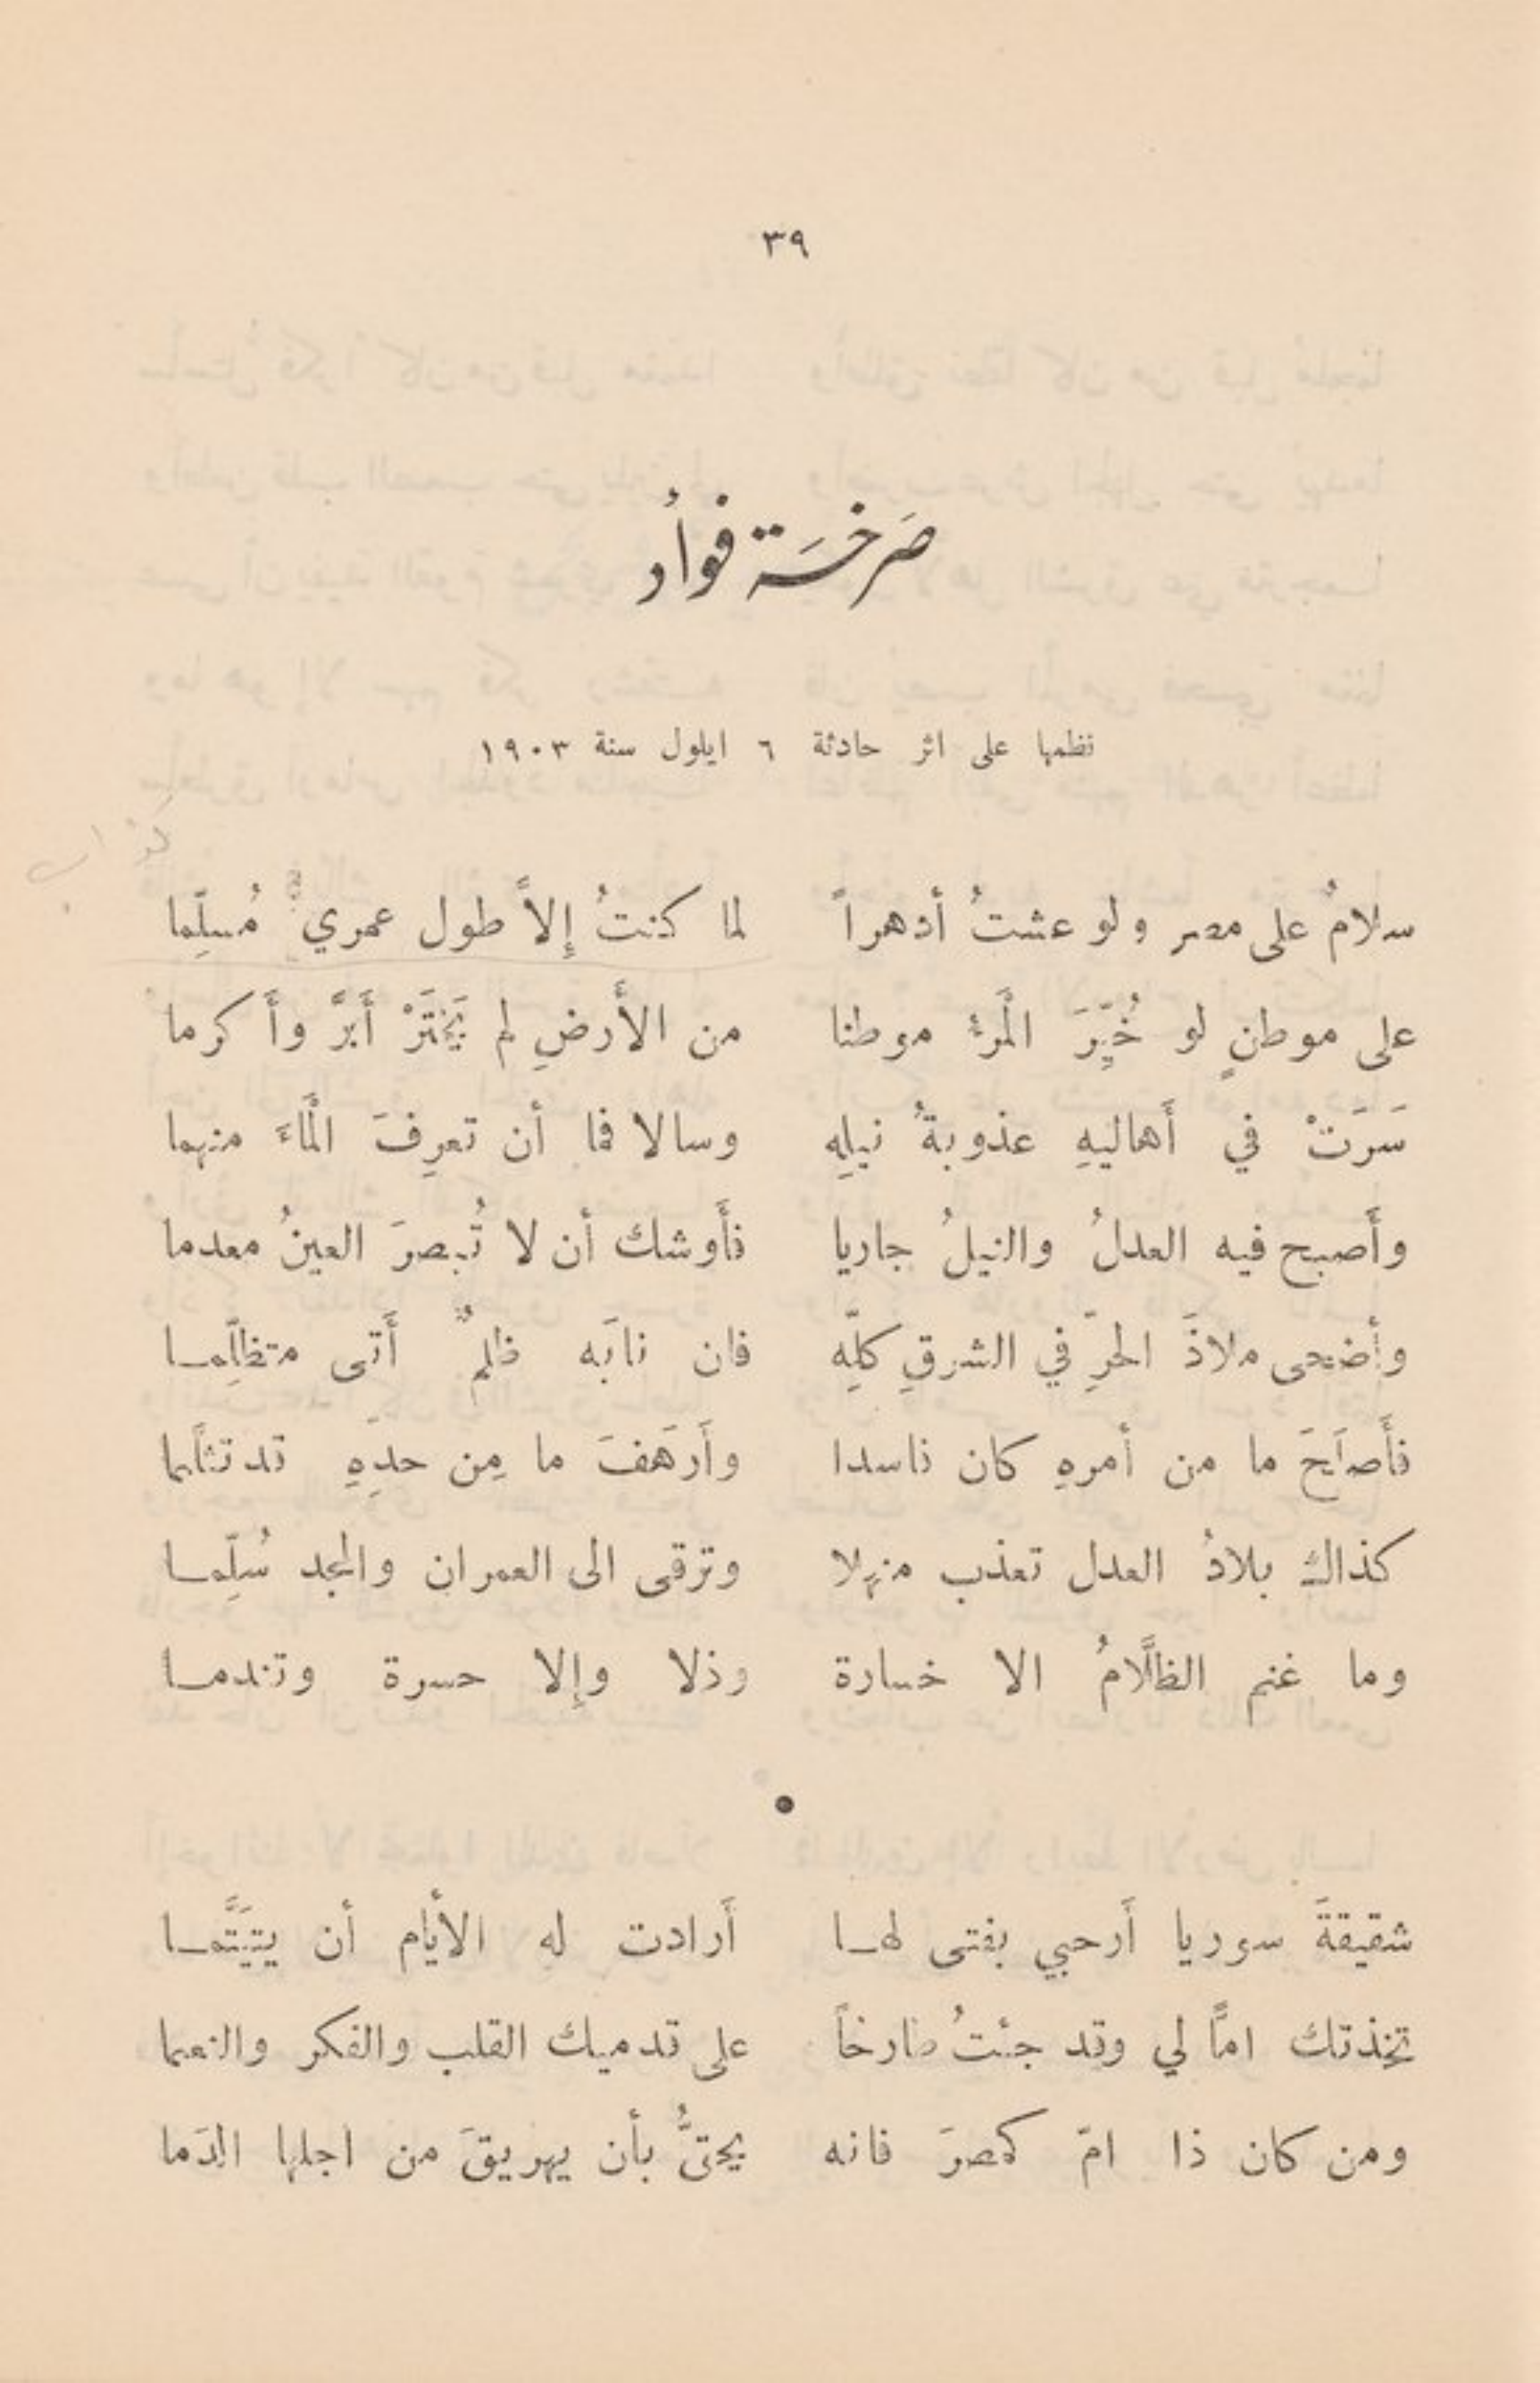 ٣٩
صَرخَة فوأد
نظمها على اثر حادثة ٦ ايلول سنة ١٩٠٣
سلامٌ على مصر ولو عشتُ أدهراً لما كنتُ إلاَّ طول عمري مُسلِّما
على موطنٍ لو خُيِّرَ الْمَرءُ موطنا من الأَرضِ لم يَخْتَرْ أَبَرَّ وأَكرما
سَرَتْ في أَهاليهِ عذوبةُ نيلِهِ وسالا فما أن تعرِفَ الْماءَ منهما
وأَصبح فيه العدلُ والنيلُ جاريا فأَوشك أن لا تُبصرَ العينُ معدما
وأضحى ملاذَ الحرِّ في الشرقِ كلِّهِ فان نابَه ظلمٌ أَتى متظلِّمـا
فأَصلَحَ ما من أمرهِ كان فاسدا وأَرهَفَ ما مِن حدِّهِ قد تثلَّما
كذاك بلادُ العدل تعذب منهلا وترقى الى العمران والمجد سُلَّمـا
وما غنم الظلَّامُ الا خسارة وذلا وإلا حسرة وتندمـا
•
شقيقةَ سوريا أَرحبي بفتى لهـا أَرادت له الأيام أن يتيَتَّمـا
تخذتك امًّا لي وقد جئتُ طارحاً على قدميك القلب والفكر والفما
ومن كان ذا امّ كمصرَ فانه يحقُّ بأن يهريقَ من اجلها الدَما